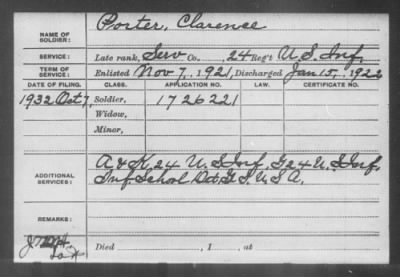 Porter, Clarence
NAME OF SOLDIER:
SERVICE: Late rank, Serv Co., 24 Reg't U.S. Inf.
TERM OF SERVICE: Enlisted Nov 7, 1921, Discharged Jan 15, 1922
DATE OF FILING. CLASS. APPLICATION NO. LAW. CERTIFICATE NO.
1932 Oct 7, Soldier, 1726221
Widow,
Minor,
A & K, 24 U.S. Inf, G 24 U.S. Inf.
ADDITIONAL SERVICES: Inf School Det, U.S.A.
REMARKS:
Died , 1 , at